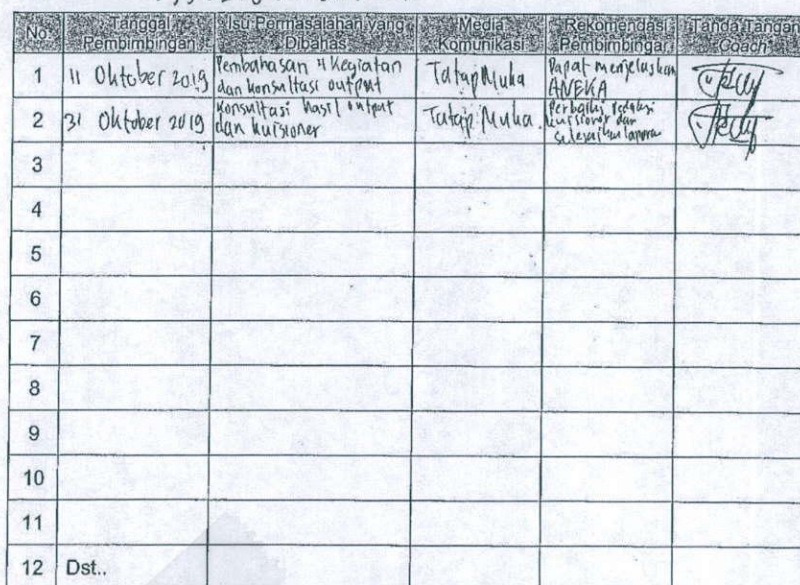 No. Tanggal Pembimbingan Isu Permasalahan yang Dibahas Media Komunikasi Rekomendasi Pembimbingan Tanda Tangan Coach
1 11 Oktober 2019 Pembahasan 4 Kegiatan dan konsultasi output Tatap Muka Dapat menjelaskan ANEKA
2 31 Oktober 2019 Konsultasi hasil output dan kuisioner Tatap Muka. Perbaiki redaksi kuisioner dan selesaikan laporan
3
4
5
6
7
8
9
10
11
12 Dst..